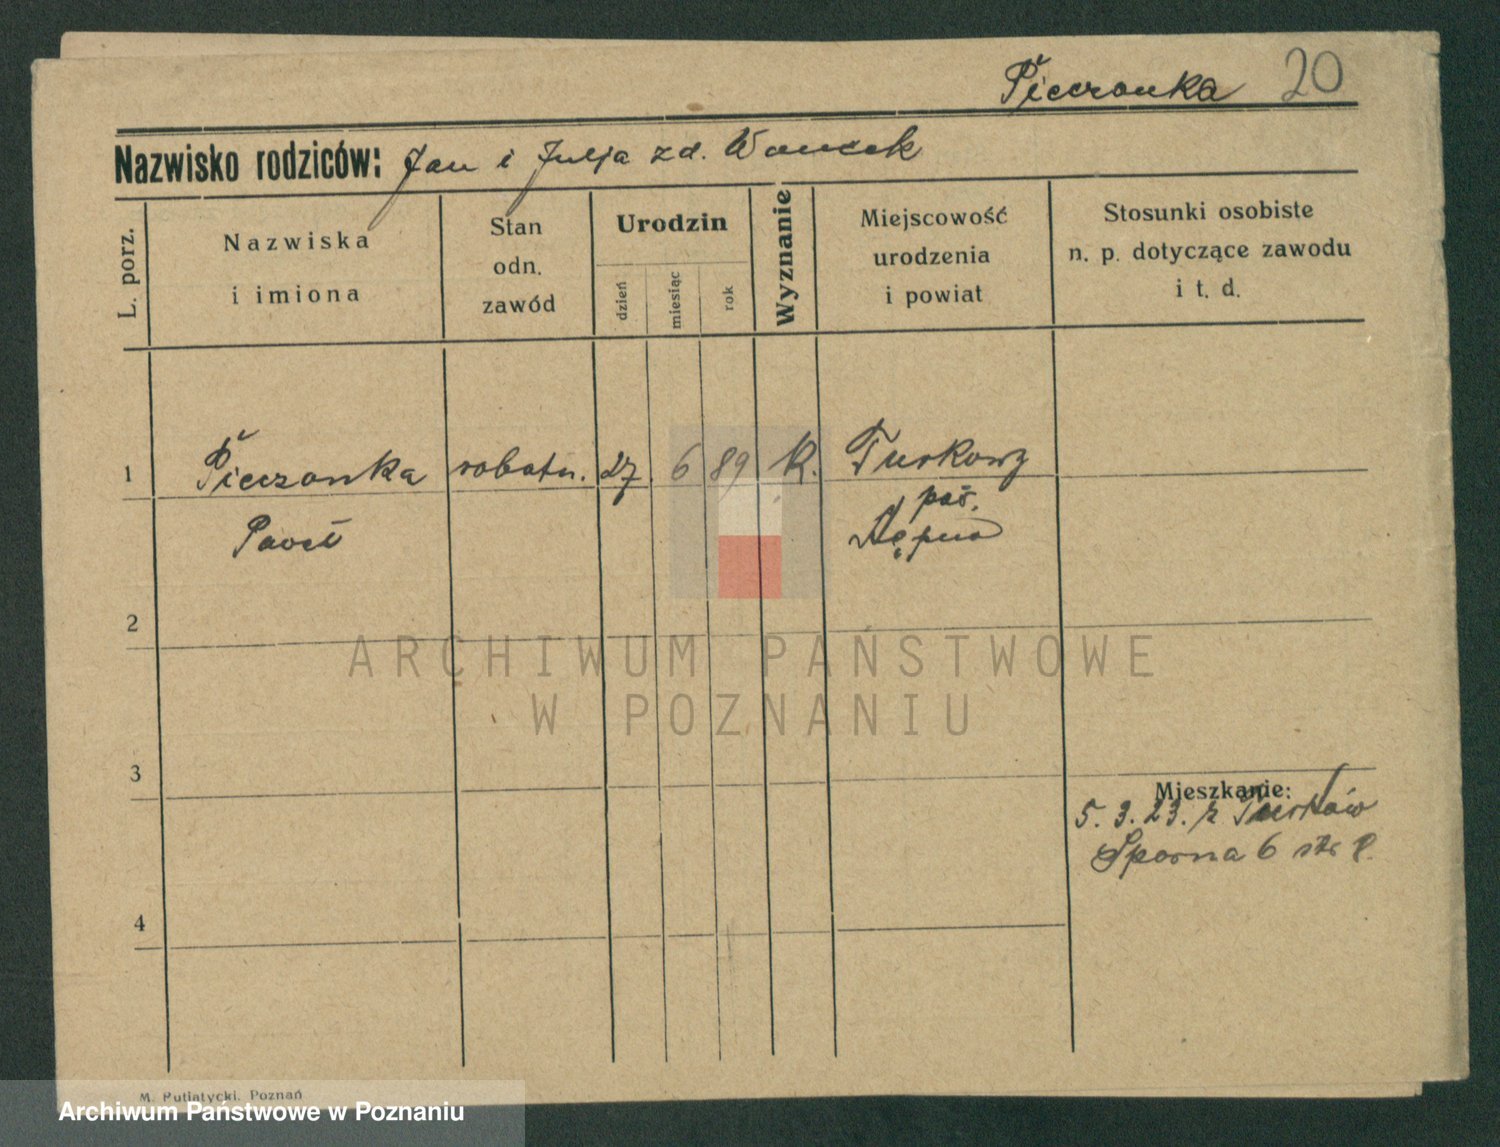 Pieczonka 20
Nazwisko rodziców: Jan i Julja zd. Wancek
L. porz.
Nazwiska
i imiona
Stan
odn.
zawód
Urodzin
dzień
miesiąc
rok
Wyznanie
Miejscowość
urodzenia
i powiat
Stosunki osobiste
n. p. dotyczące zawodu
i t. d.
1 Pieczonka robotn. 27 6 89 k. Turkowy
Paweł
pow.
Kępno
2
ARCHIWUM PAŃSTWOWE
W POZNANIU
3
Mieszkanie:
5. 3. 23. z Turków
Sporna 6 str P.
4
M. Putiatycki, Poznań
Archiwum Państwowe w Poznaniu